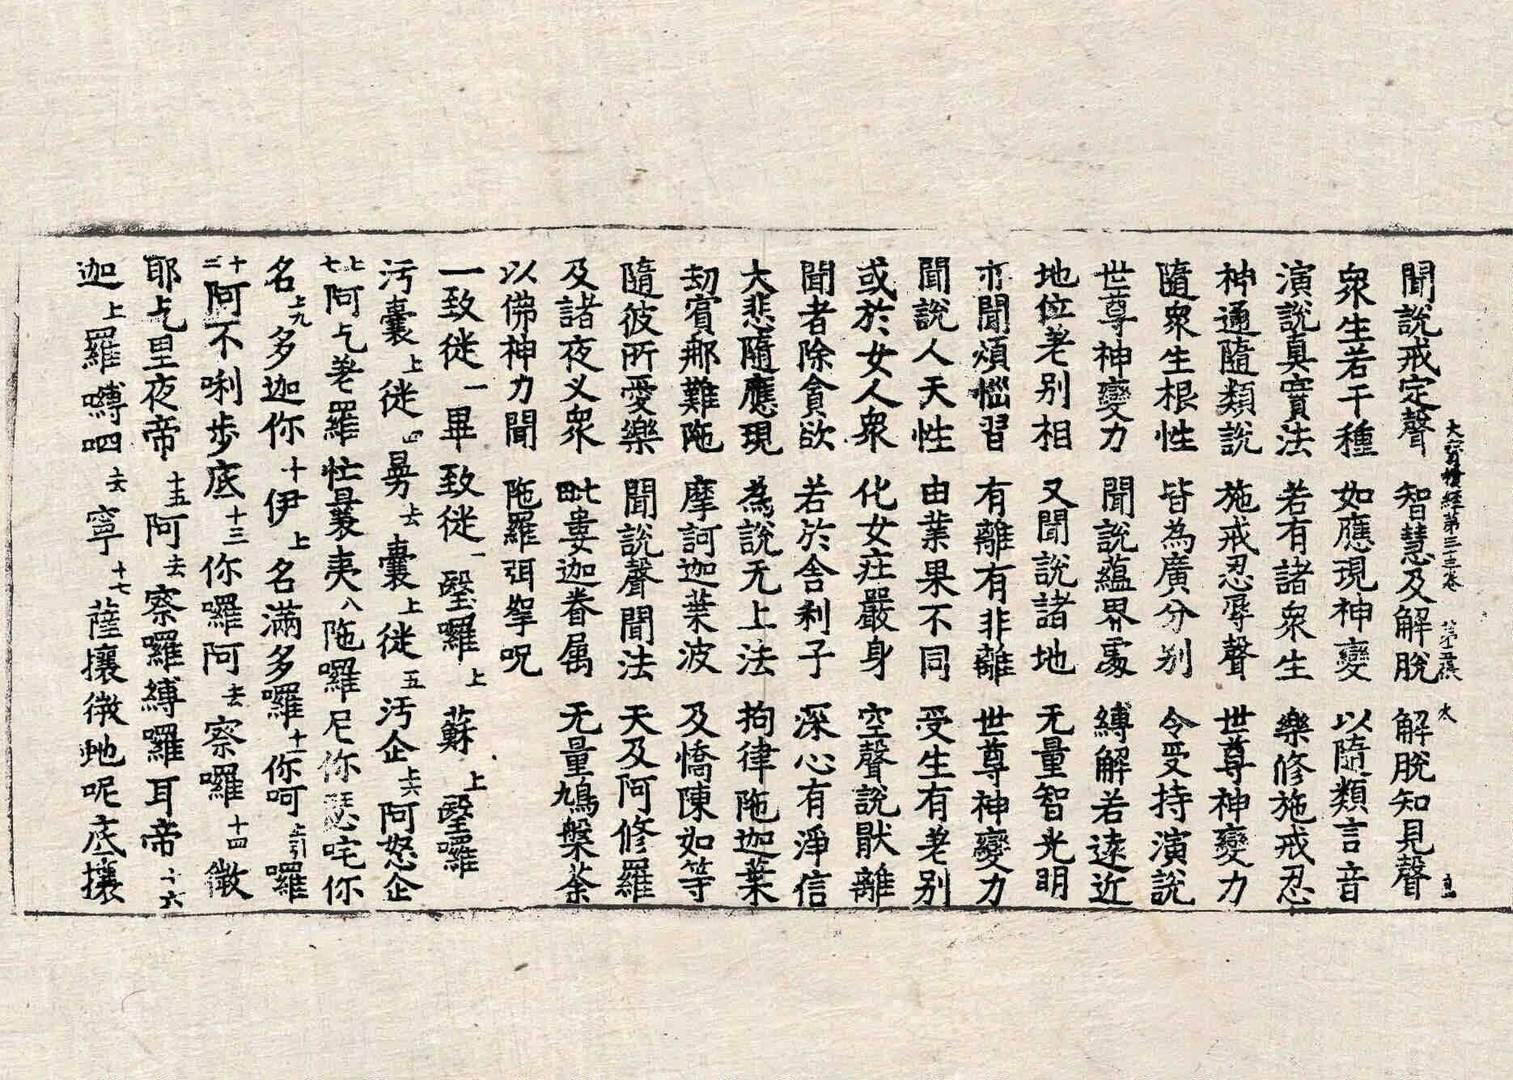 大寶積經第三十三卷 第二張 大
聞說戒定聲 智慧及解脫 解脫知見聲
衆生若干種 如應現神變 以隨類言音
演說真實法 若有諸衆生 樂修施戒忍
神通隨類說 施戒忍辱聲 世尊神變力
隨衆生根性 皆為廣分别 令受持演說
世尊神變力 聞說蘊界處 縛解若遠近
地位差别相 又聞說諸地 无量智光明
亦聞煩惱習 有離有非離 世尊神變力
聞說人天性 由業果不同 受生有差别
或於女人衆 化女莊嚴身 空聲說猒離
聞者除貪欲 若於舍利子 深心有淨信
大悲隨應現 為說无上法 拘律陁迦葉
劫賓那難陁 摩訶迦葉波 及憍陳如等
隨彼所愛樂 聞說聲聞法 天及阿修羅
及諸夜叉衆 毗婁迦眷属 无量鳩槃荼
以佛神力聞 陁羅弭拏呪
一致徙一畢致徙一毉囉上蘇上毉囉
污囊上徙四曷去囊上徙五污企上六阿怒企
上七阿乞差羅忙曇夷八陁囉尼你瑟咤你
名上九多迦你十伊上名滿多囉十一你呵上引囉
十二阿不唎步底十三你囉阿去察囉十四徵
耶乞里夜帝十五阿去察囉縛囉耳帝十六
迦上羅嚩呬去寧十七薩攘徵虵呢底攘